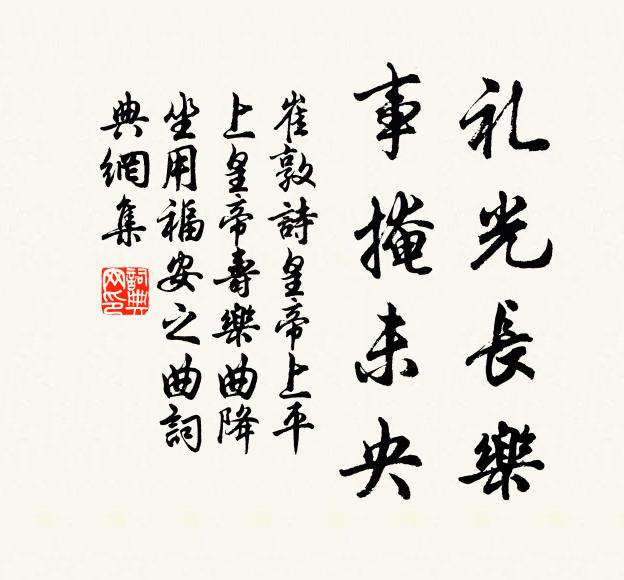 礼光長樂
事掩未央
崔敦詩皇帝上平
上皇帝壽樂曲降
坐用福安之曲詞
典網集
詞典網印